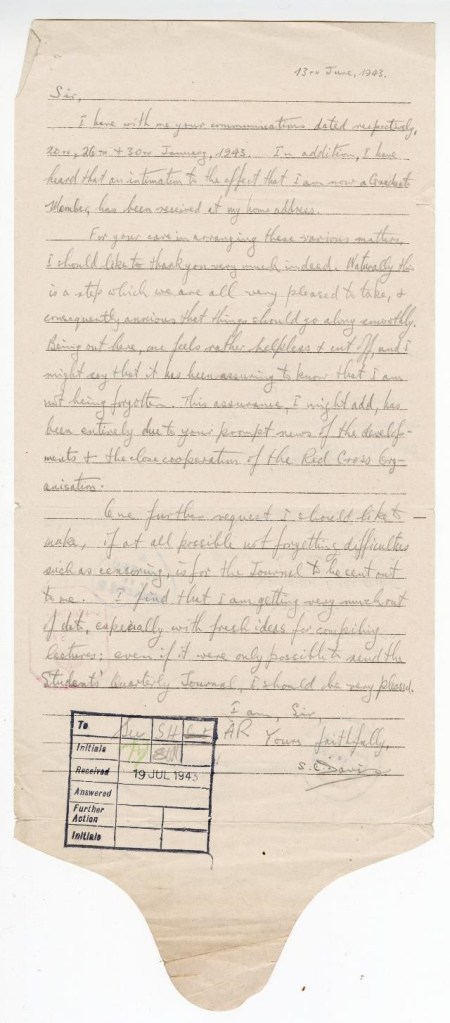 13TH June, 1943.
Sir,
I have with me your communications dated respectively,
20TH, 26TH & 30TH January, 1943. In addition, I have
heard that an intimation to the effect that I am now a Graduate
Member, has been received at my home address.
For your care in arranging these various matters,
I should like to thank you very much indeed. Naturally this
is a step which we are all very pleased to take, &
consequently anxious that things should go along smoothly.
Being out here, one feels rather helpless & cut off, and I
might say that it has been assuring to know that I am
not being forgotten. This assurance, I might add, has
been entirely due to your prompt news of the develop-
ments & the close cooperation of the Red Cross Org-
anisation.
One further request I should like to
make, if at all possible not forgetting difficulties
such as censoring, is for the Journal to be sent out
to me. I find that I am getting very much out
of date, especially with fresh ideas for compiling
lectures; even if it were only possible to send the
Students' Quarterly Journal, I should be very pleased.
I am, Sir,
Yours faithfully,
S. C. Davis
To Sec SH AR
Initials
Received 19 JUL 1943
Answered
Further
Action
Initials